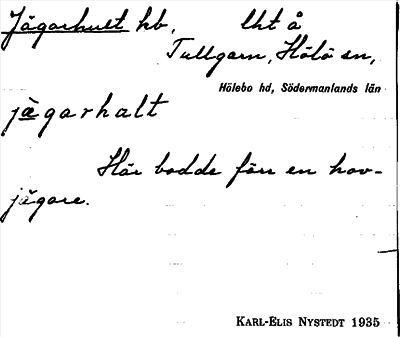 Jägarhult hb, lht å
Tullgarn, Hölö sn,
Hölebo hd, Södermanlands län
jägarhalt
Här bodde förr en hov-
jägare.
KARL-ELIS NYSTEDT 1935